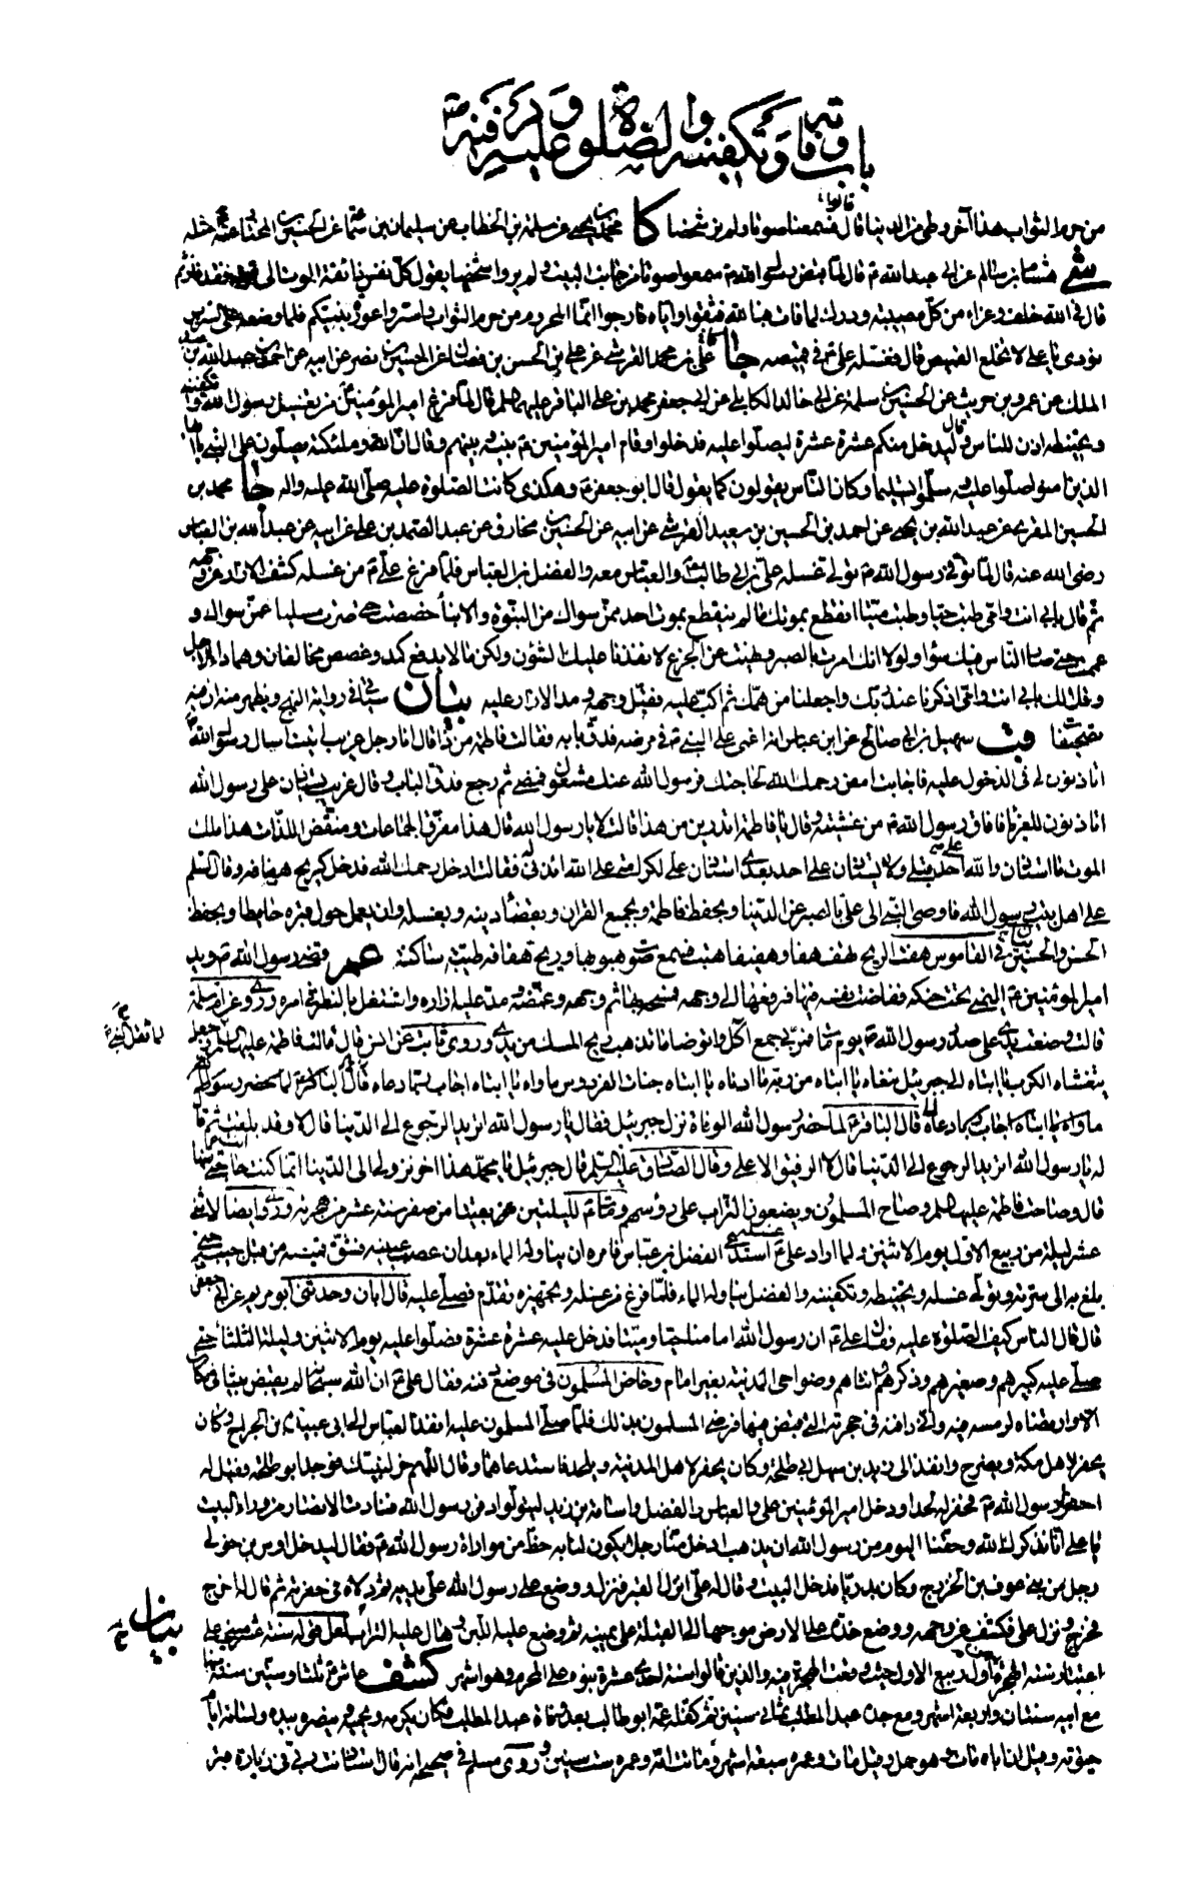 باب وفاته وتكفينه والصلوة عليه ودفنه
من حرم الثواب هذا آخر وطئ من الدنيا قال فسمعنا صوتا ولم نر شخصا كا محمد بن يحيى عن سلمة بن الخطاب عن سليمان بن سماعة عن الحسين بن المختار عنه مثله
شى هشام بن سالم عن ابى عبد الله ع قال لما قبض رسول الله ص سمعوا صوتا من جانب البيت ولم يروا شخصا يقول كل نفس ذائقة الموت الى قوله فقد فاز ثم
قال فى الله خلف وعزاء من كل مصيبة ودرك لما فات فبالله فثقوا واياه فارجوا انما المحروم من حرم الثواب واستروا عورة نبيكم فلما وضعه على السرير
نودى يا على لا تخلع القميص قال فغسله على ع فى قميصه جا على بن محمد القرشى عن على بن الحسن بن فضال عن الحسين بن نصر عن ابيه عن احمد بن عبد الله بن
الملك عن عمرو بن حريث عن الحسين بن سلمة عن ابى خالد الكابلى عن ابى جعفر محمد بن على الباقر عليهما السلم قال لما فرغ امير المؤمنين من تغسيل رسول الله وتكفينه
وتحنيطه اذن للناس وقال ليدخل منكم عشرة عشرة ليصلوا عليه فدخلوا وقام امير المؤمنين ع بينه وبينهم وقال ان الله وملئكته يصلون على النبى يا ايها
الذين امنوا صلوا عليه وسلموا تسليما وكان الناس يقولون كما يقول قال ابو جعفر ع وهكذى كانت الصلوة عليه صلى الله عليه واله جا محمد بن
الحسين المقرى عن عبد الله بن يحيى عن احمد بن الحسين بن سعيد القرشى عن ابيه عن الحسين بن مخارق عن عبد الصمد بن على عن ابيه عن عبد الله بن العباس
رضى الله عنه قال لما توفى رسول الله ص تولى غسله على بن ابى طالب ع والعباس معه والفضل بن العباس فلما فرغ على ع من غسله كشف الازار عن وجهه
ثم قال بابى انت وامى طبت حيا وطبت ميتا انقطع بموتك ما لم ينقطع بموت احد ممن سواك من النبوة والانباء خصصت حتى صرت مسليا عمن سواك و
عممت حتى صار الناس فيك سواء ولولا انك امرت بالصبر ونهيت عن الجزع لانفدنا عليك الشئون ولكن ما لا يدفع كمد وغصص مخالفان وهما داء الاجل
وقلا لك بابى انت وامى اذكرنا عند ربك واجعلنا من همك ثم اكب عليه فقبل وجهه ومد الازار عليه بيان سيأتى فى رواية النهج ويظهر منه ان فيه
تصحيفا قب سهيل بن ابى صالح عن ابن عباس انه اغمى على النبى ص فى مرضه فدق بابه فقالت فاطمة من ذا قال انا رجل غريب اتيت اسال رسول الله
اتاذنون لى فى الدخول عليه فاجابت امض رحمك الله لحاجتك فرسول الله عنك مشغول فمضى ثم رجع فدق الباب وقال غريب يستاذن على رسول الله
اتاذنون للغرباء فافاق رسول الله ص من غشيته وقال يا فاطمة اتدرين من هذا قالت لا يا رسول الله قال هذا مفرق الجماعات ومنغص اللذات هذا ملك
الموت ما استاذن والله على احد قبلى ولا يستاذن على احد بعدى استاذن على لكرامتى على الله ائذنى له فقالت ادخل رحمك الله فدخل كريح هفافة وقال السلم
على اهل بيت رسول الله فاوصى النبى الى على بالصبر عن الدنيا وبحفظ فاطمة وبجمع القران وبقضاء دينه وبغسله وان يعمل حول قبره حايطا وبحفظ
الحسن والحسين بيان فى القاموس هفت الريح تهف هفا وهفيفا هبت فسمع صوت هبوبها وريح هفافة طيبة ساكنة عم وقبض رسول الله ص ويد
امير المؤمنين ع اليمنى تحت حنكه ففاضت نفسه فيها فرفعها الى وجهه فمسحه بها ثم وجهه وغمضه ومد عليه ازاره واشتغل بالنظر فى امره وروى عن ام سلمة
قالت وضعت يدى على صدر رسول الله ص يوم مات فمر بى جمع اكل واتوضا ما تذهب ريح المسك من يدى وروى ثابت عن انس قال قالت فاطمة عليها السلم لما ثقل النبى ص وجعل
يتغشاه الكرب يا ابتاه الى جبرئيل ننعاه يا ابتاه من ربه ما ادناه يا ابتاه جنات الفردوس ماواه يا ابتاه اجاب ربا دعاه قال الباقر ع لما حضر رسول الله
ماواه يا ابتاه اجاب ربا دعاه قال الباقر ع لما حضر رسول الله الوفاة نزل جبرئيل فقال يا رسول الله اتريد الرجوع الى الدنيا قال لا وقد بلغت ثم قال
له يا رسول الله اتريد الرجوع الى الدنيا قال لا الرفيق الاعلى وقال الصادق عليه السلم قال جبرئيل يا محمد هذا اخر نزولى الى الدنيا انما كنت انت حاجتى منها
قال وصاحت فاطمة عليها السلم وصاح المسلمون ويضعون التراب على رؤسهم ومات ع لليلتين بقيتا من صفر سنة عشر من هجرته وروى ايضا لاثنتى
عشرة ليلة من ربيع الاول يوم الاثنين ولما اراد على ع غسله استدعى الفضل بن عباس فامره ان يناوله الماء بعد ان عصب عينيه فشق قميصه من قبل جيبه حتى
بلغ به الى سرته وتولى غسله وتحنيطه وتكفينه والفضل يناوله الماء فلما فرغ من غسله وتجهيزه تقدم فصلى عليه قال ابان وحدثنى ابو مريم عن ابى جعفر
قال قال الناس كيف الصلوة عليه فقال على ع ان رسول الله امامنا حيا وميتا فدخل عليه عشرة عشرة فصلوا عليه يوم الاثنين وليلة الثلثا حتى
صلى عليه كبيرهم وصغيرهم وذكرهم وانثاهم وضواحى المدينة بغير امام وخاض المسلمون فى موضع دفنه فقال على ع ان الله سبحانه لم يقبض نبيا فى مكان
الا وارتضاه لرمسه فيه وانى دافنه فى حجرته التى قبض فيها فرضى المسلمون بذلك فلما صلى المسلمون عليه انفذ العباس الى ابى عبيدة بن الجراح وكان
يحفر لاهل مكة ويضرح وانفذ الى زيد بن سهل ابى طلحة وكان يحفر لاهل المدينة ويلحد فاستدعاهما وقال اللهم خر لنبيك فوجد ابو طلحة وقيل له
احفر لرسول الله ص فحفر له لحدا ودخل امير المؤمنين على والعباس والفضل واسامة بن زيد ليتولوا دفن رسول الله فنادت الانصار من وراء البيت
يا على انا نذكرك الله وحقنا اليوم من رسول الله ان يذهب ادخل منا رجلا يكون لنا به حظ من مواراة رسول الله ص فقال ليدخل اوس بن خولى
رجل من بنى عوف بن الخزرج وكان بدريا فدخل البيت وقال له على انزل القبر فنزل ووضع على رسول الله على يديه ثم دلاه فى حفرته ثم قال له اخرج
فخرج ونزل على فكشف عن وجهه ووضع خده على الارض موجها الى القبلة على يمينه ثم وضع عليه اللبن وهال عليه التراب بيان لعل قوله سنة عشر مبنى على
اعتبار سنة الهجرة من اول ربيع الاول حيث وقعت الهجرة فيه والذين قالوا سنة احدى عشرة بنوه على المحرم وهو اشهر كشف عاش ص ثلثا وستين سنة منها
مع ابيه سنتان واربعة اشهر ومع جده عبد المطلب ثمانى سنين ثم كفله عمه ابو طالب بعد وفاة عبد المطلب فكان يكرمه ويحميه وينصره بيده ولسانه ايام
حيوته وقيل ان اباه مات وهو حمل وقيل مات وعمره سبعة اشهر وماتت امه وعمره ست سنين وروى مسلم فى صحيحه انه قال استاذنت ربى فى زيارة قبر